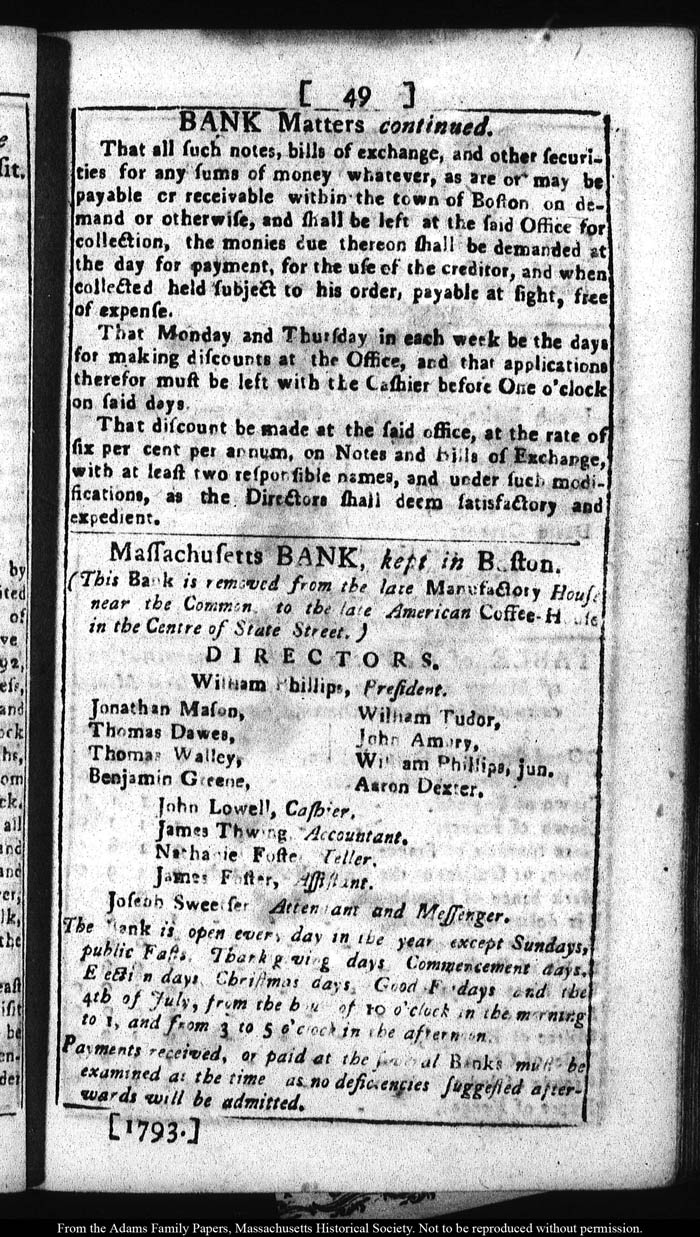 [ 49 ]
BANK Matters continued.
That all ſuch notes, bills of exchange, and other ſecuri-
ties for any ſums of money whatever, as are or may be
payable or receivable within the town of Boſton on de-
mand or otherwiſe, and ſhall be left at the ſaid Office for
collection, the monies due thereon ſhall be demanded at
the day for payment, for the uſe of the creditor, and when
collected held ſubject to his order, payable at ſight, free
of expenſe.
That Monday and Thurſday in each week be the days
for making diſcounts at the Office, and that applications
therefor muſt be left with the Caſhier before One o'clock
on ſaid days.
That diſcount be made at the ſaid office, at the rate of
ſix per cent per annum, on Notes and bills of Exchange,
with at leaſt two reſponſible names, and under ſuch modi-
fications, as the Directors ſhall deem ſatisfactory and
expedient.
Maſſachuſetts BANK, kept in Boſton.
(This Bank is removed from the late Manufactory Houſe
near the Common, to the late American Coffee-Houſe
in the Centre of State Street.)
DIRECTORS.
William Phillips, Preſident.
Jonathan Maſon, William Tudor,
Thomas Dawes, John Amory,
Thomas Walley, William Phillips, jun.
Benjamin Greene, Aaron Dexter.
John Lowell, Caſhier.
James Thwing, Accountant.
Nathaniel Foſter, Teller.
James Foſter, Aſſiſtant.
Joſeph Sweetſer Attendant and Meſſenger.
The Bank is open every day in the year except Sundays,
public Faſts, Thankſgiving days, Commencement days,
Election days, Chriſtmas days, Good Fridays and the
4th of July, from the hour of 10 o'clock in the morning
to 1, and from 3 to 5 o'clock in the afternoon.
Payments received, or paid at the ſeveral Banks muſt be
examined at the time as no deficiencies ſuggeſted after-
wards will be admitted.
[1793.]
From the Adams Family Papers, Massachusetts Historical Society. Not to be reproduced without permission.